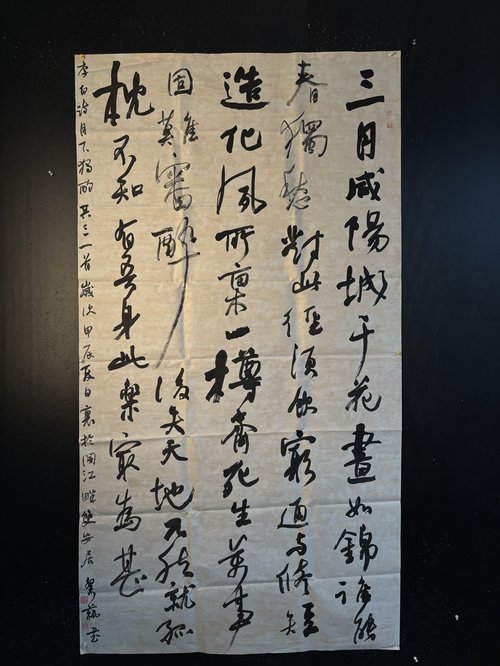 三月咸陽城千花晝如錦誰能
春獨愁對此徑須飲窮通与修短
造化夙所稟一樽齊死生萬事
固難審醉後失天地兀然就孤
枕不知有吾身此樂最為甚
李白詩月下獨酌其三一首歲次甲辰夏日 於閩江畔 安居 书